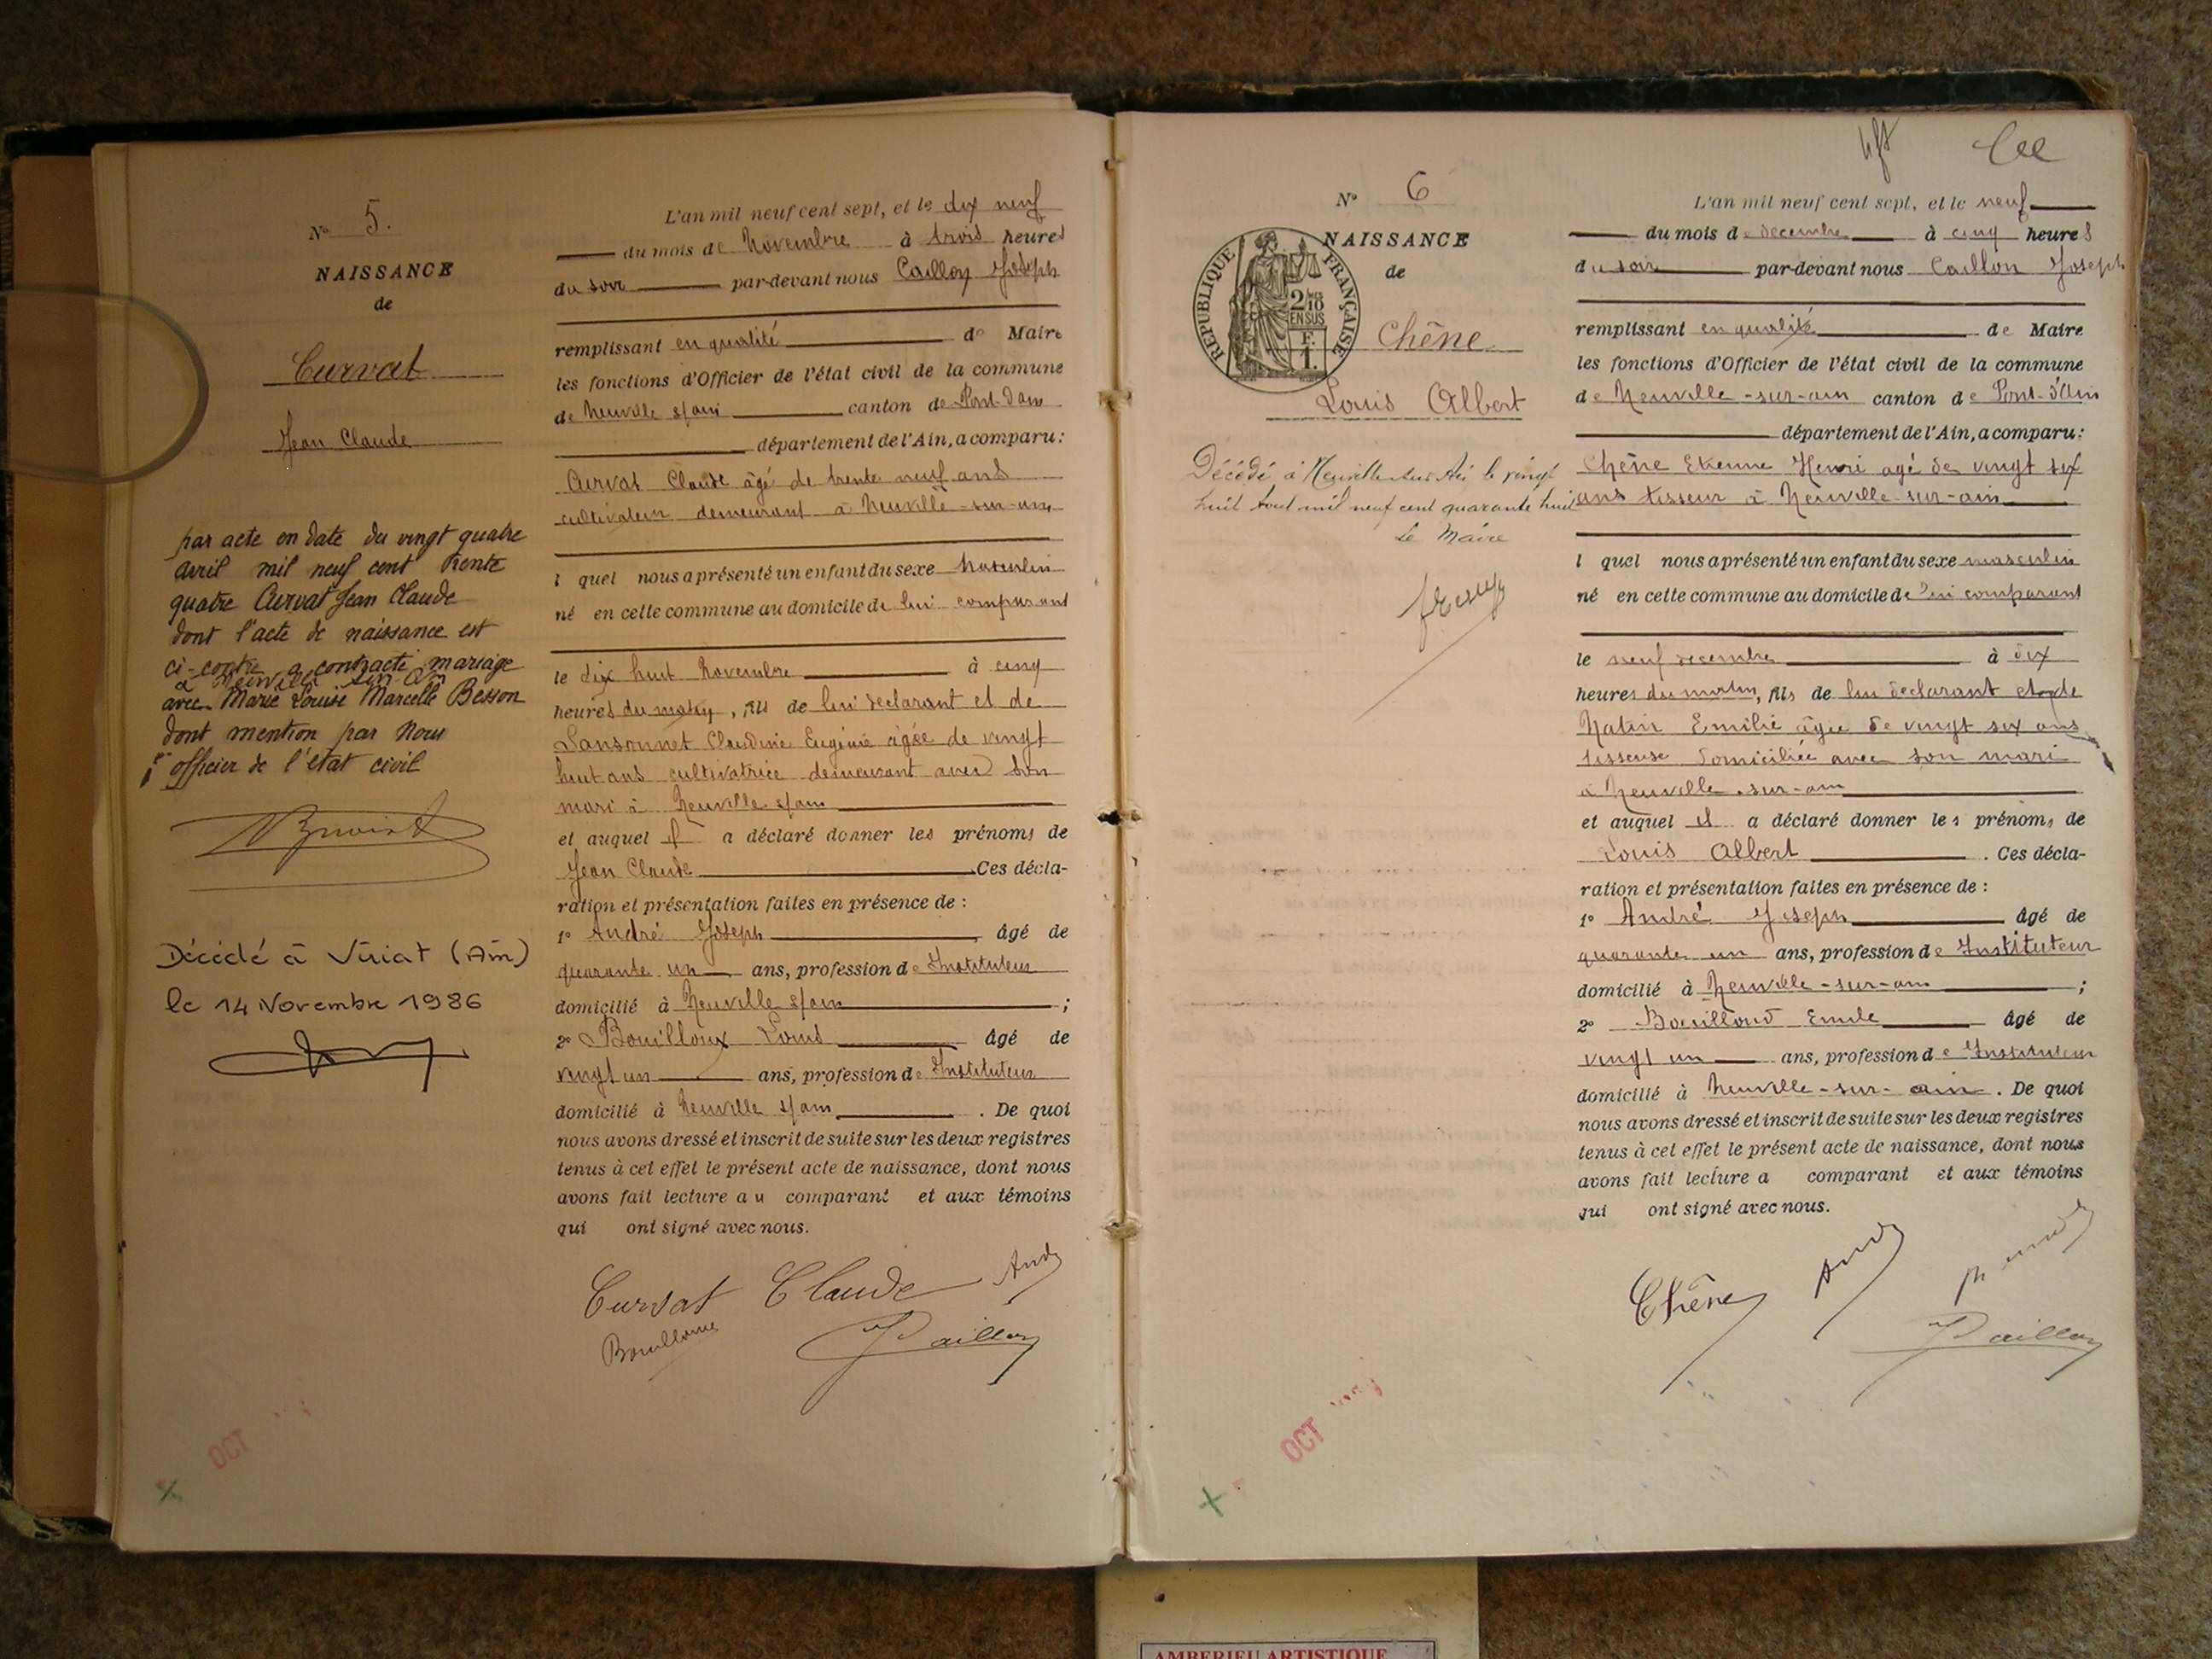 N° 5.
NAISSANCE
de
Curvat
Jean Claude
par acte en date du vingt quatre
avril mil neuf cent trente
quatre Curvat Jean Claude
dont l'acte de naissance est
ci-contre a contracté mariage
à Neuville sur Ain
avec Marie Louise Marcelle Besson
dont mention par Nous
officier de l'état civil
Décédé à Viriat (Ain)
le 14 Novembre 1986
OCT
L'an mil neuf cent sept, et le dix neuf
du mois de Novembre à trois heures
du soir par-devant nous Caillon Joseph
remplissant en qualité de Maire
les fonctions d'Officier de l'état civil de la commune
de Neuville s/ain canton de Pont-dain
département de l'Ain, a comparu:
Curvat Claude âgé de trente neuf ans
cultivateur demeurant à Neuville-sur-ain
l quel nous a présenté un enfant du sexe Masculin
né en cette commune au domicile de lui comparant
le dix huit Novembre à cinq
heures du matin, fils de lui déclarant et de
Claudine Eugénie âgée de vingt
huit ans cultivatrice demeurant avec son
mari à Neuville s/ain
et auquel il a déclaré donner les prénoms de
Jean Claude Ces décla-
ration et présentation faites en présence de :
1° André Joseph âgé de
quarante un ans, profession de Instituteur
domicilié à Neuville s/ain ;
2° Bouilloux Louis âgé de
vingt un ans, profession de Instituteur
domicilié à Neuville s/ain . De quoi
nous avons dressé et inscrit de suite sur les deux registres
tenus à cet effet le présent acte de naissance, dont nous
avons fait lecture au comparant et aux témoins
qui ont signé avec nous.
Curvat Claude
Caillon
N° 6
RÉPUBLIQUE FRANÇAISE
2/10
EN SUS
F.
1.
NAISSANCE
de
Chêne
Louis Albert
Décédé à Neuville sur Ain le vingt
huit Août mil neuf cent quarante huit
Le Maire
OCT
L'an mil neuf cent sept, et le neuf
du mois de decembre à cinq heures
du soir par-devant nous Caillon Joseph
remplissant en qualité de Maire
les fonctions d'Officier de l'état civil de la commune
de Neuville-sur-ain canton de Pont-d'Ain
département de l'Ain, a comparu:
Chêne Etienne Henri agé de vingt six
ans tisseur à Neuville-sur-ain
l quel nous a présenté un enfant du sexe masculin
né en cette commune au domicile de lui comparant
le neuf decembre à dix
heures du matin, fils de lui déclarant et de
Emilie âgée de vingt six ans
tisseuse domiciliée avec son mari
à Neuville-sur-ain
et auquel il a déclaré donner les prénoms de
Louis Albert . Ces décla-
ration et présentation faites en présence de :
1° André Joseph âgé de
quarante un ans, profession de Instituteur
domicilié à Neuville-sur-ain ;
2° Emile âgé de
vingt un ans, profession de Instituteur
domicilié à Neuville-sur-ain . De quoi
nous avons dressé et inscrit de suite sur les deux registres
tenus à cet effet le présent acte de naissance, dont nous
avons fait lecture a comparant et aux témoins
qui ont signé avec nous.
Chêne
Caillon
AMBERIEU ARTISTIQUE